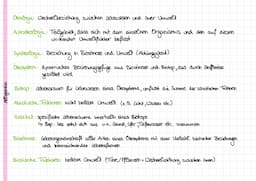 Ökologie: Wechselbeziehung zwischen Lebewesen und ihrer Umwelt
Autökologie: Teilgebiet, dass sich mit dem einzelnen Organismus und den auf diesen wirkenden Umweltfaktoren befasst
Synökologie: Beziehung in Biozönose und Umwelt (Abhängigkeit)
Ökosystem: dynamisches Beziehungsgefüge aus Biozönose und Biotop, das durch Stoffkreise gestaltet wird
Biotop: Lebensraum für Lebewesen eines Ökosystems, umfasst die Summe der abiotischen Faktoren
Abiotische Faktoren: nicht belebte Umwelt (z.B. Licht, Wasser etc.)
Habitat: spezifischer Lebensraum innerhalb eines Biotops
Biozönose: Lebensgemeinschaft aller Arten eines Ökosystems mit einer Vielzahl
Biotische Faktoren: belebte Umwelt (Tiere/Pflanzen + Wechselwirkung zwischen ihnen)
Allgemein